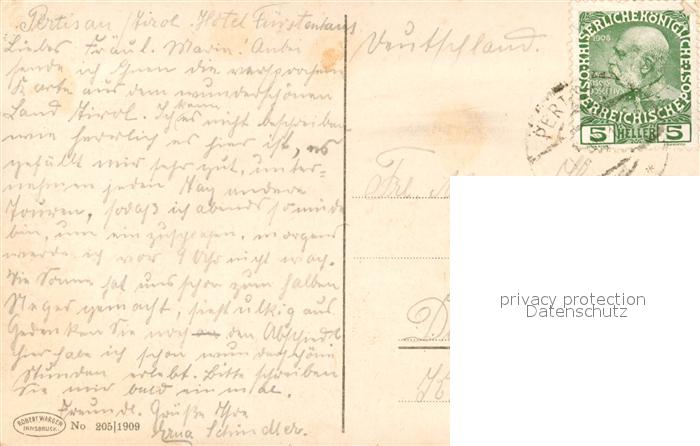 Pertisau/Tirol. Hotel Fürstenhaus
Liebes Fräul. Marie. Anbei
sende ich Ihnen die versprochene
Karte aus dem wunderschönen
Land Tirol. Ich kann
es nicht beschreiben
wie herrlich es hier ist, es
gefällt mir sehr gut, unter-
nehmen jeden Tag andere
Touren, sodaß ich abends so müde
bin, um einzuschlafen, morgens
werde ich vor 9 Uhr nicht wach.
Die Sonne hat uns schon zum halben
Neger gemacht, sieht ulkig aus
Gedenken Sie noch an den Abschied.
Hier habe ich schon wunderschöne
Stunden erlebt. Bitte schreiben
Sie mir bald einmal.
Freundl. Grüße Ihre
Erna Schindler.
ROBERT WARGER
INNSBRUCK
No 205|1909
Deutschland.
Frl.
KAISERLICHE KÖNIGLICHE
ÖSTERREICHISCHE
1908
5 HELLER 5
privacy protection
Datenschutz